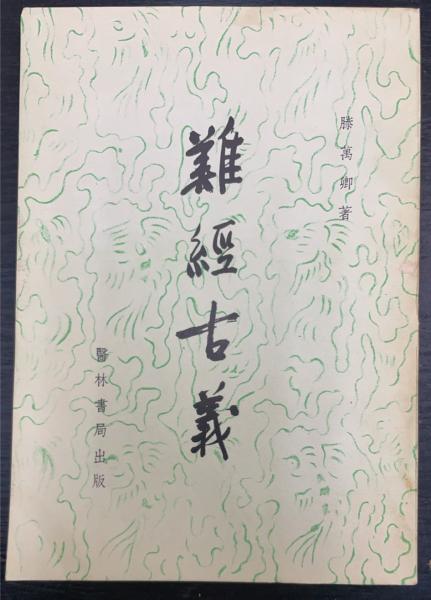 滕萬卿著
難經古義
醫林書局出版